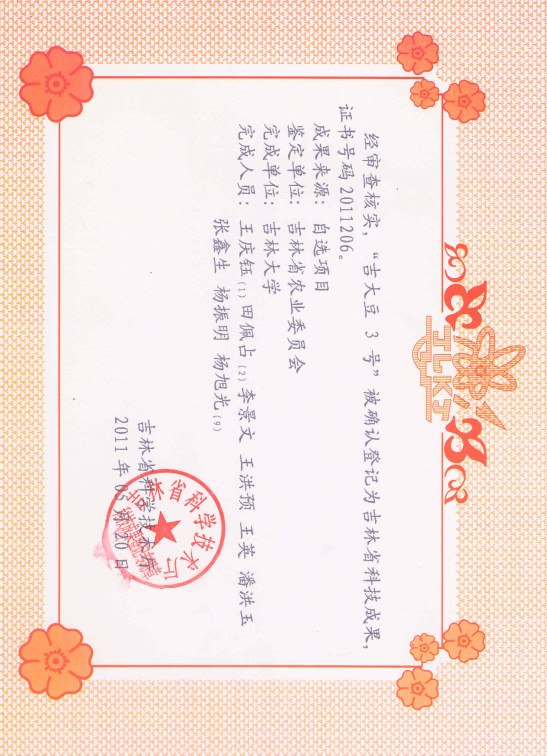 JLKJ
经审查核实，“吉大豆 3 号”被确认登记为吉林省科技成果，
证书号码 2011206。
成果来源：自选项目
鉴定单位：吉林省农业委员会
完成单位：吉林大学
完成人员：王庆钰(1)田佩占(2)李景文 王洪预 王英 潘洪玉
张鑫生 杨振明 杨旭光(9)
吉林省科学技术厅
2011 年 05 月 20 日
吉林省科学技术厅